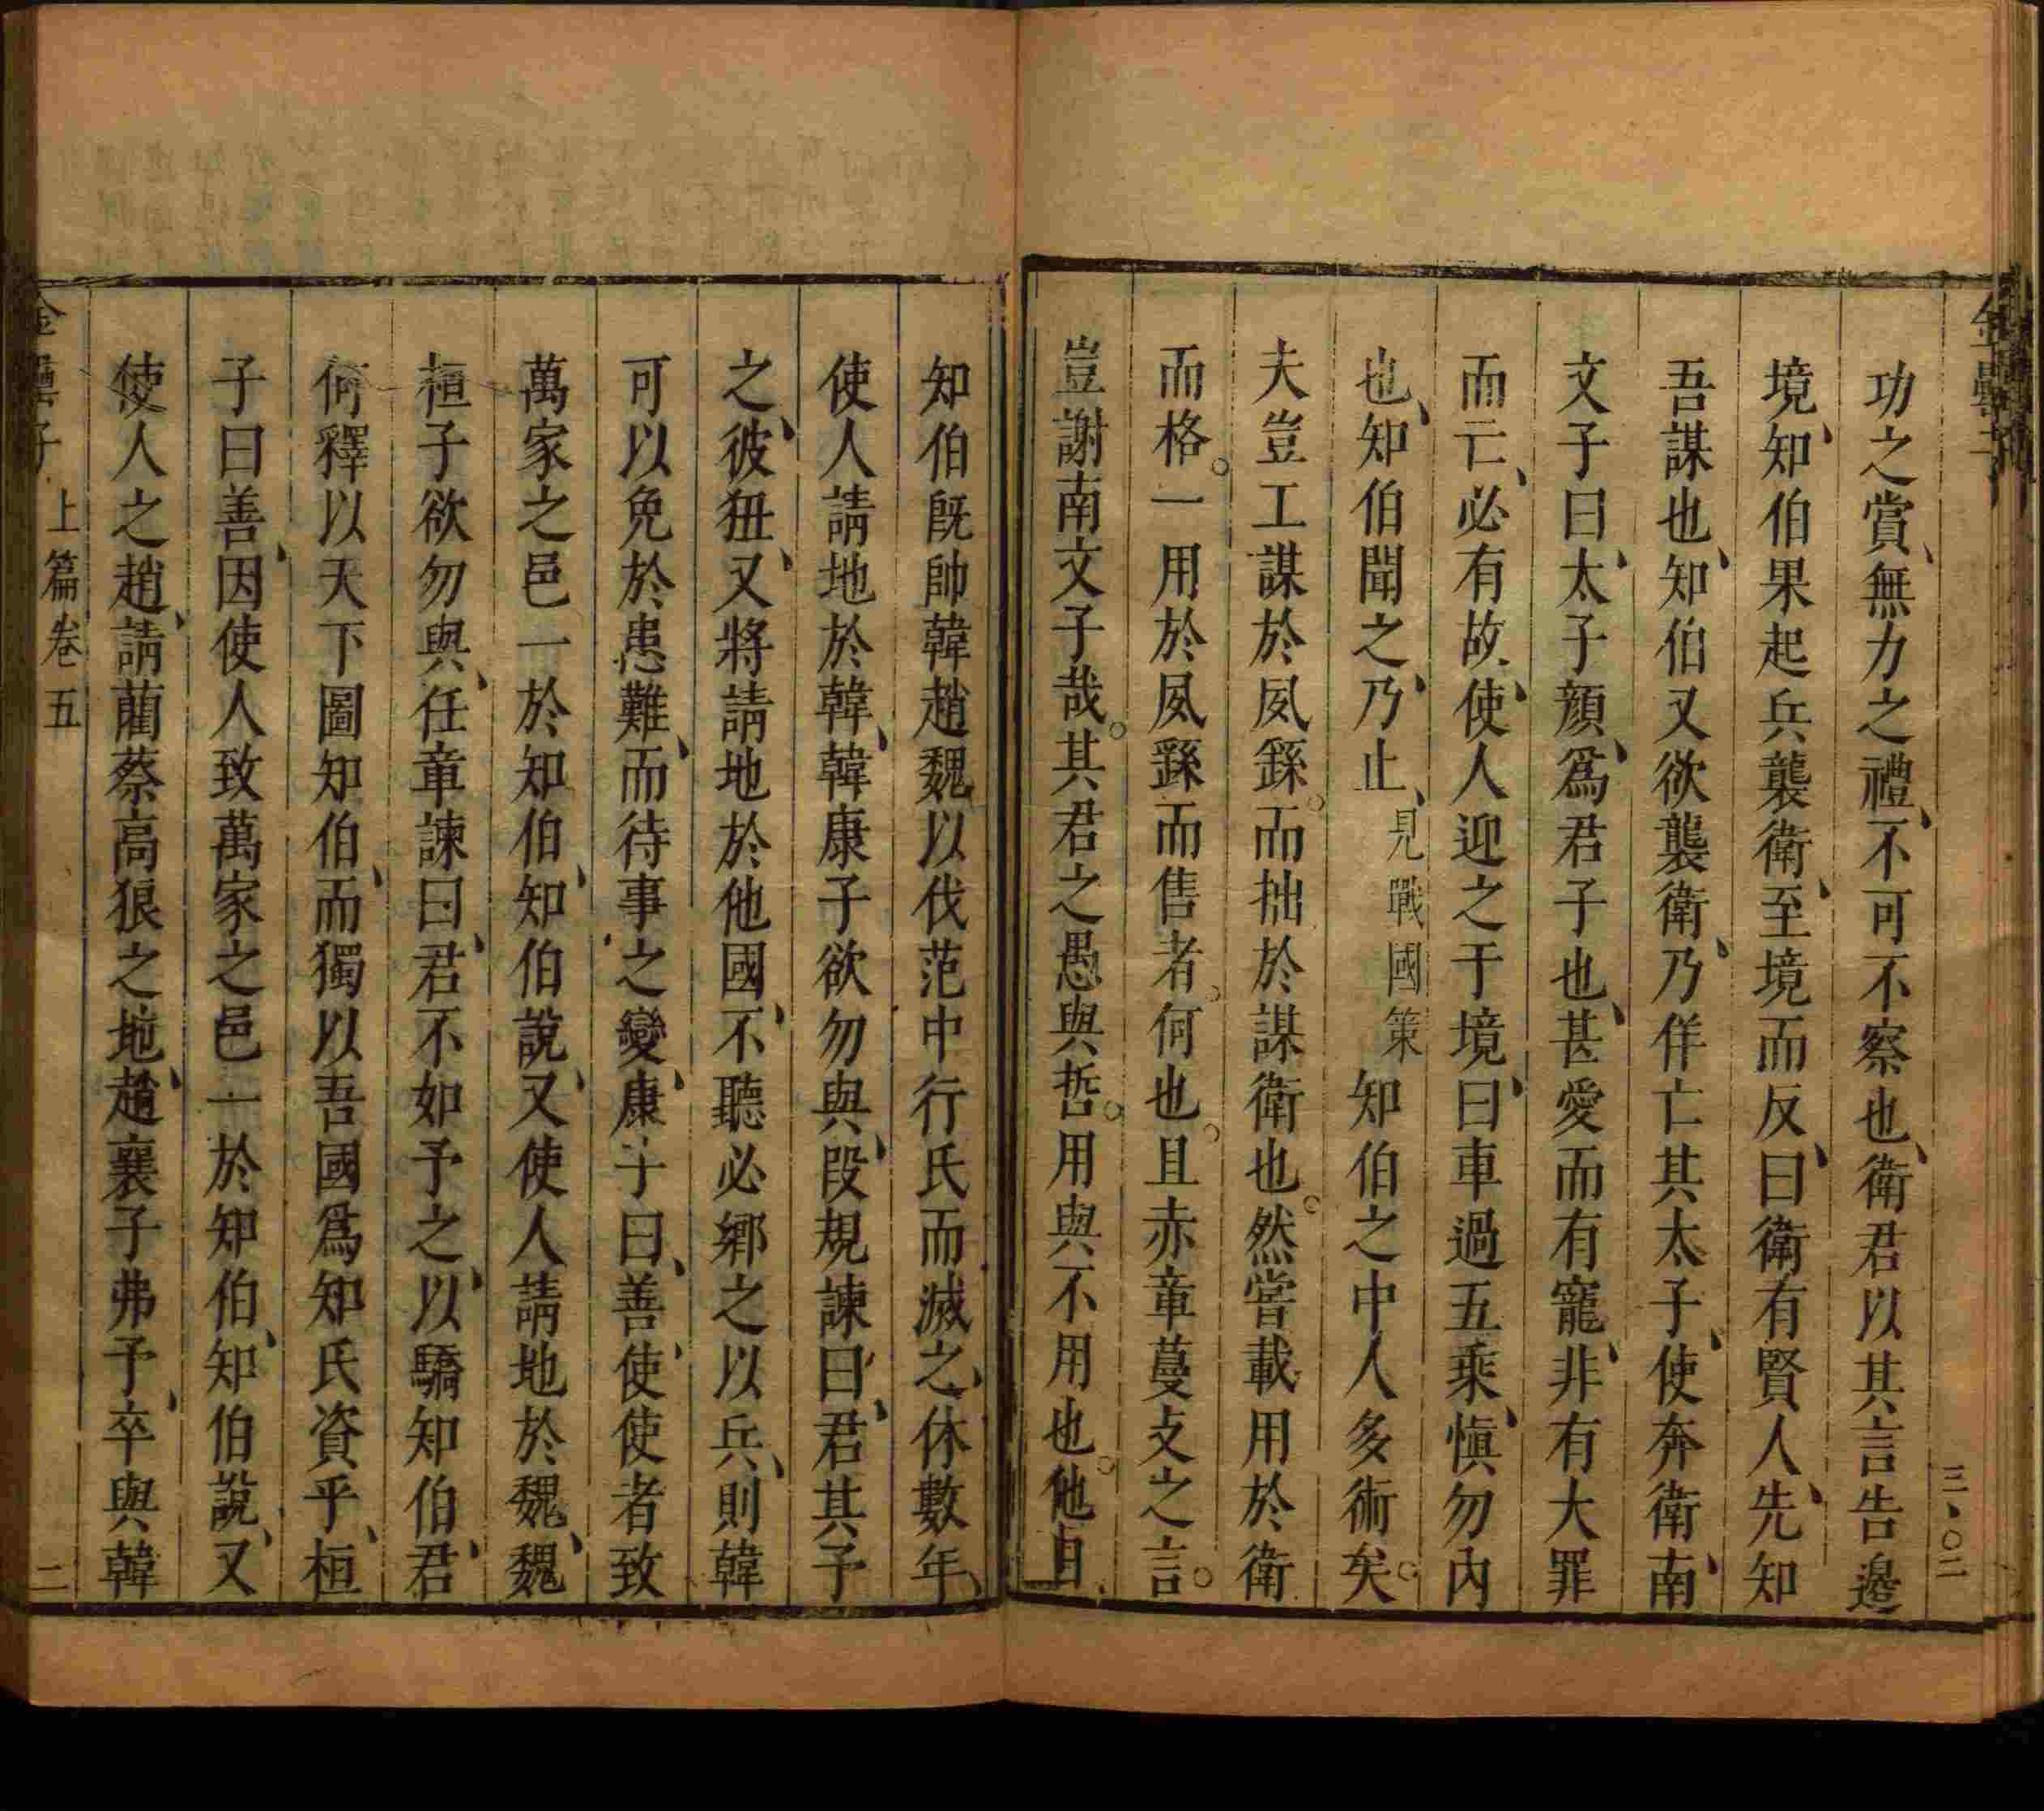 功之賞、無力之禮、不可不察也、衛君以其言告邊
境、知伯果起兵襲衛、至境而反、曰衛有賢人、先知
吾謀也、知伯又欲襲衛、乃佯亡其太子、使奔衛、南
文子曰、太子顔、爲君子也、甚愛而有寵、非有大罪
而亡、必有故、使人迎之于境、曰車過五乘、慎勿內
也、知伯聞之、乃止、見戰國策知伯之中人多術矣。
夫豈工謀於夙繇。而拙於謀衛也。然嘗載用於衛
而格。一用於夙繇而售者。何也。且赤章蔓攴之言。
豈謝南文子哉。其君之愚與哲。用與不用也。他日、
知伯既帥韓趙魏以伐范中行氏而滅之、休數年、
使人請地於韓、韓康子欲勿與、段規諫曰、君其予
之、彼狃、又將請地於他國、不聽必鄉之以兵、則韓
可以免於患難、而待事之變、康子曰、善、使使者致
萬家之邑一於知伯、知伯說、又使人請地於魏、魏
桓子欲勿與、任章諫曰、君不如予之、以驕知伯、君
何釋以天下圖知伯、而獨以吾國爲知氏資乎、桓
子曰善、因使人致萬家之邑一於知伯、知伯說、又
使人之趙、請藺蔡高狼之地、趙襄子弗予、卒與韓
上篇卷五
二